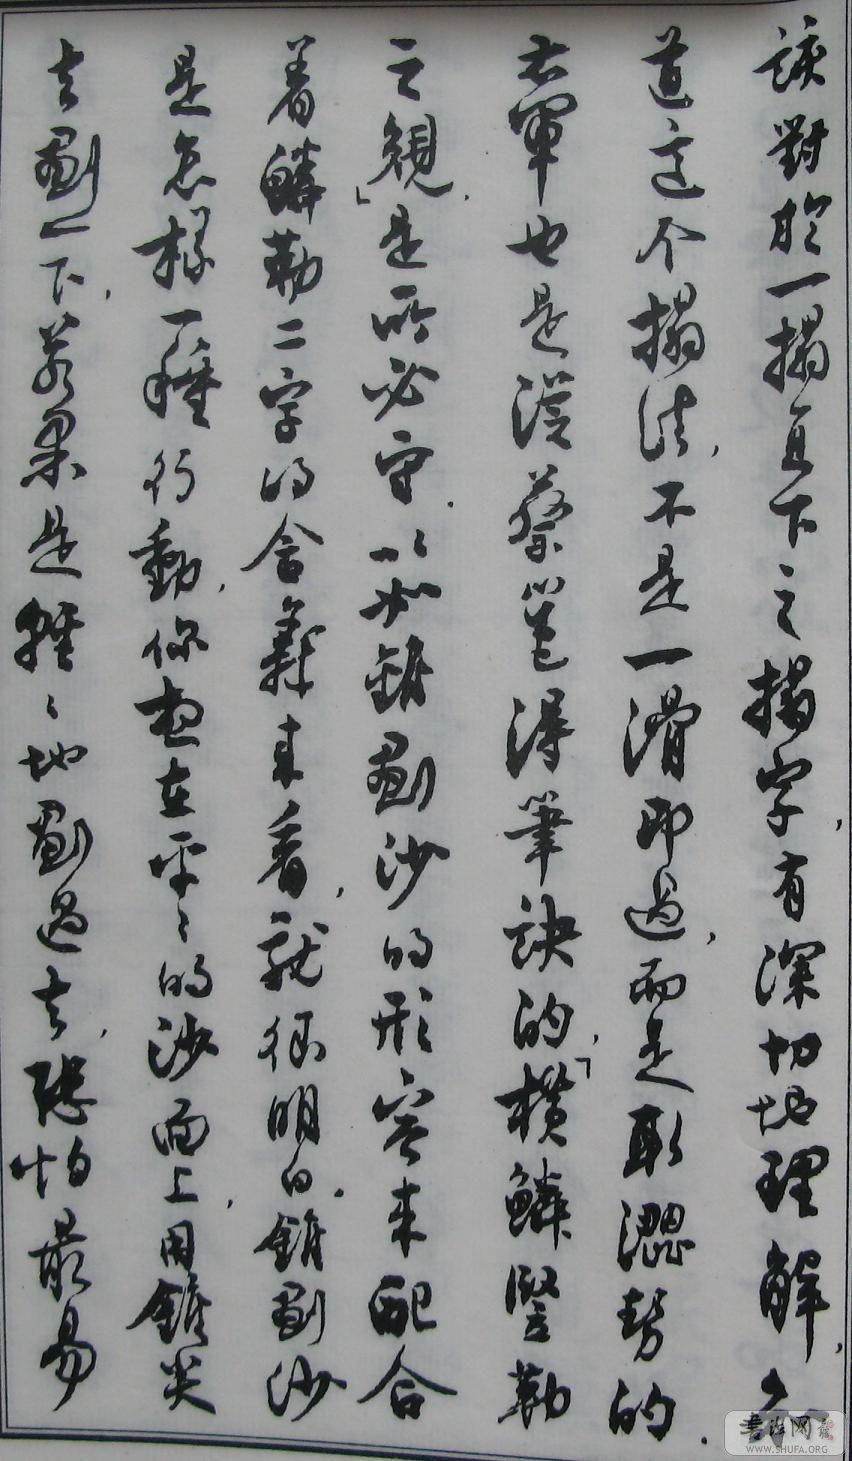 該對於一搨直下之搨字,有深切地理解,知
道這个搨法,不是一滑即過,而是取澀勢的.
右軍也是從蔡邕得筆訣的,「橫鱗豎勒
之規」是所必守.以如錐劃沙的形容來配合
着鱗勒二字的含義來看,就很明白.錐劃沙
是怎樣一種行動,你想在平々的沙面上,用錐尖
去劃一下,若果是輕々地劃過去,恐怕最易
書法网
WWW.SHUFA.ORG